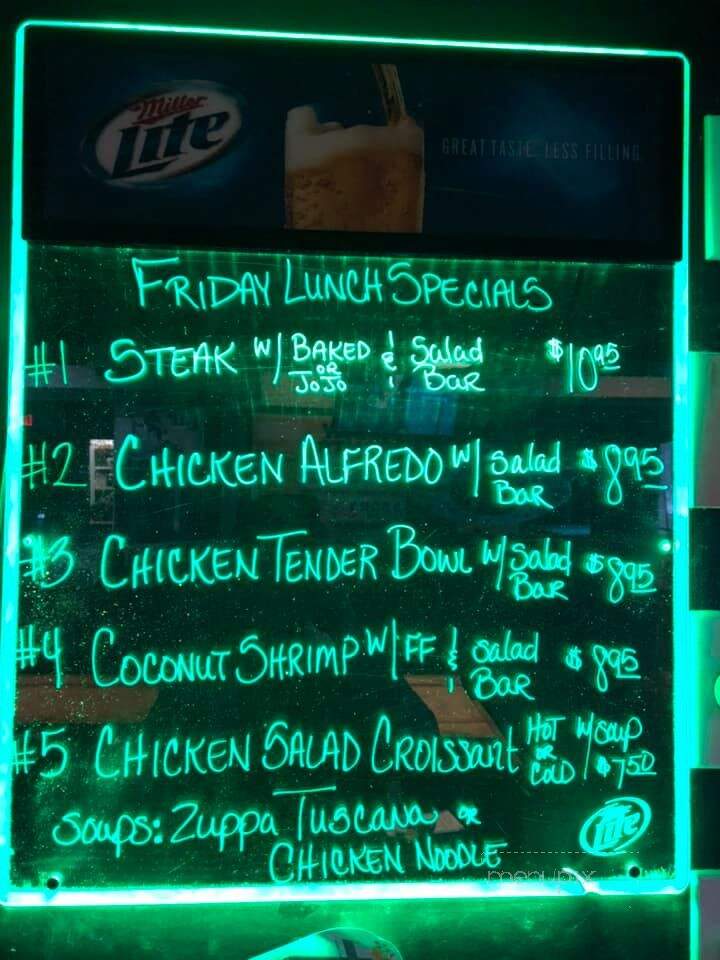 Miller
Lite
GREAT TASTE. LESS FILLING.
FRIDAY LUNCH SPECIALS
#1 STEAK W/ BAKED OR JOJO & Salad BAR $10.95
#2 CHICKEN ALFREDO W/ Salad BAR $8.95
#3 CHICKEN TENDER BOWL W/ Salad BAR $8.95
#4 COCONUT SHRIMP W/ FF & salad BAR $8.95
#5 CHICKEN SALAD CROISSANT HOT OR COLD W/ soup $7.50
Soups: Zuppa Tuscana OR
CHICKEN NOODLE
Lite
menupix